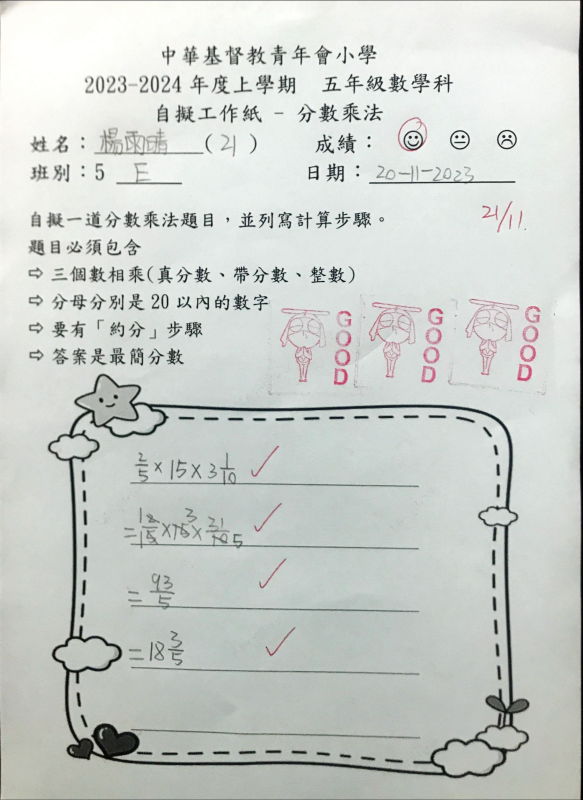 中華基督教青年會小學
2023-2024 年度上學期 五年級數學科
自擬工作紙 - 分數乘法
姓名：楊雨晴(21) 成績：
班別：5 E 日期：20-11-2023
21/11.
自擬一道分數乘法題目，並列寫計算步驟。
題目必須包含
⇨ 三個數相乘(真分數、帶分數、整數)
⇨ 分母分別是 20 以內的數字
⇨ 要有「約分」步驟
⇨ 答案是最簡分數
GOOD GOOD GOOD
2/5 × 15 × 3 1/10
= 1 2/5 1 × 15 3 × 31/10 5
= 93/5
= 18 3/5